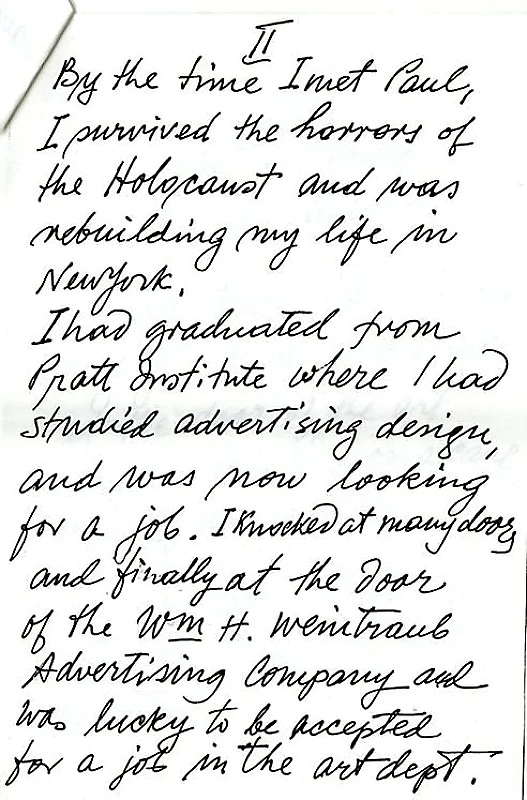 II
By the time I met Paul,
I survived the horrors of
the Holocaust and was
rebuilding my life in
New York.
I had graduated from
Pratt Institute where I had
studied advertising design,
and was now looking
for a job. I knocked at many doors
and finally at the door
of the Wm H. Weintraub
Advertising Company and
was lucky to be accepted
for a job in the art dept.